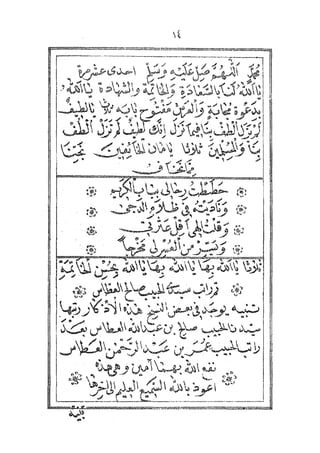 ١٤
محمد اللهم صل عليه وسلم احدى عشر مرة
يا الله لنا بالسعادة والخاتمة والشهادة يا الله
بدعوة مجابة والفرس مفتوح بابه يا لطيفا
لم تزل الطف بنا فيما نزل انك لطيف لم تزل الطف
بنا والمسلمين ثلاثا يا مان الخائفين نجنا
مما نخاف
حططت رحالي بباب الكريم
وناديته في ظلام الدجى
وقلت الهي اقل عثرتي
ويسر من العسر لي مخرجا
ثلاثا يا الله بها يا الله بها يا الله بحسن الخاتمة
تم راتب سيدنا الحبيب صالح العطاس
تنبيه يوجد في بعض النسخ هذه الاذكار رتبها
سيدنا الحبيب صالح بن عبد الله العطاس بعد
راتب الحبيب عمر بن عبد الرحمن العطاس
نفع الله بهما آمين وهي هذه
اعوذ بالله السميع العليم الى آخرها